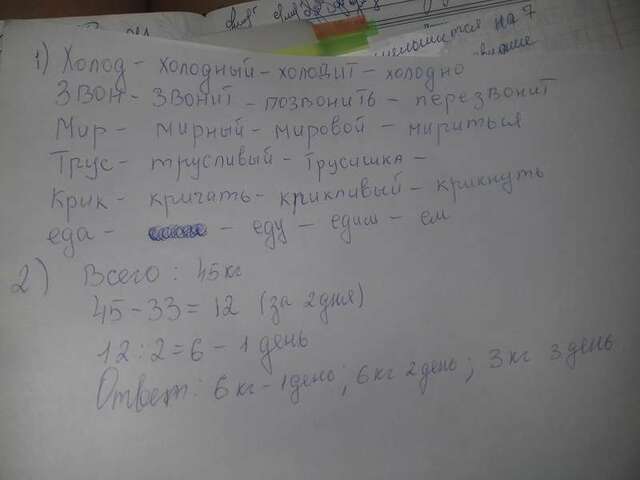 уменьшится на 7
1) Холод - холодный - холодит - холодно
Звон - звонит - позвонить - перезвонит
Мир - мирный - мировой - мириться
Трус - трусливый - Трусишка -
Крик - кричать - крикливый - крикнуть
еда - - еду - едим - ем
2) Всего: 45 кг
45 - 33 = 12 (за 2 дня)
12 : 2 = 6 - 1 день
Ответ: 6 кг - 1 день; 6 кг 2 день; 3 кг 3 день